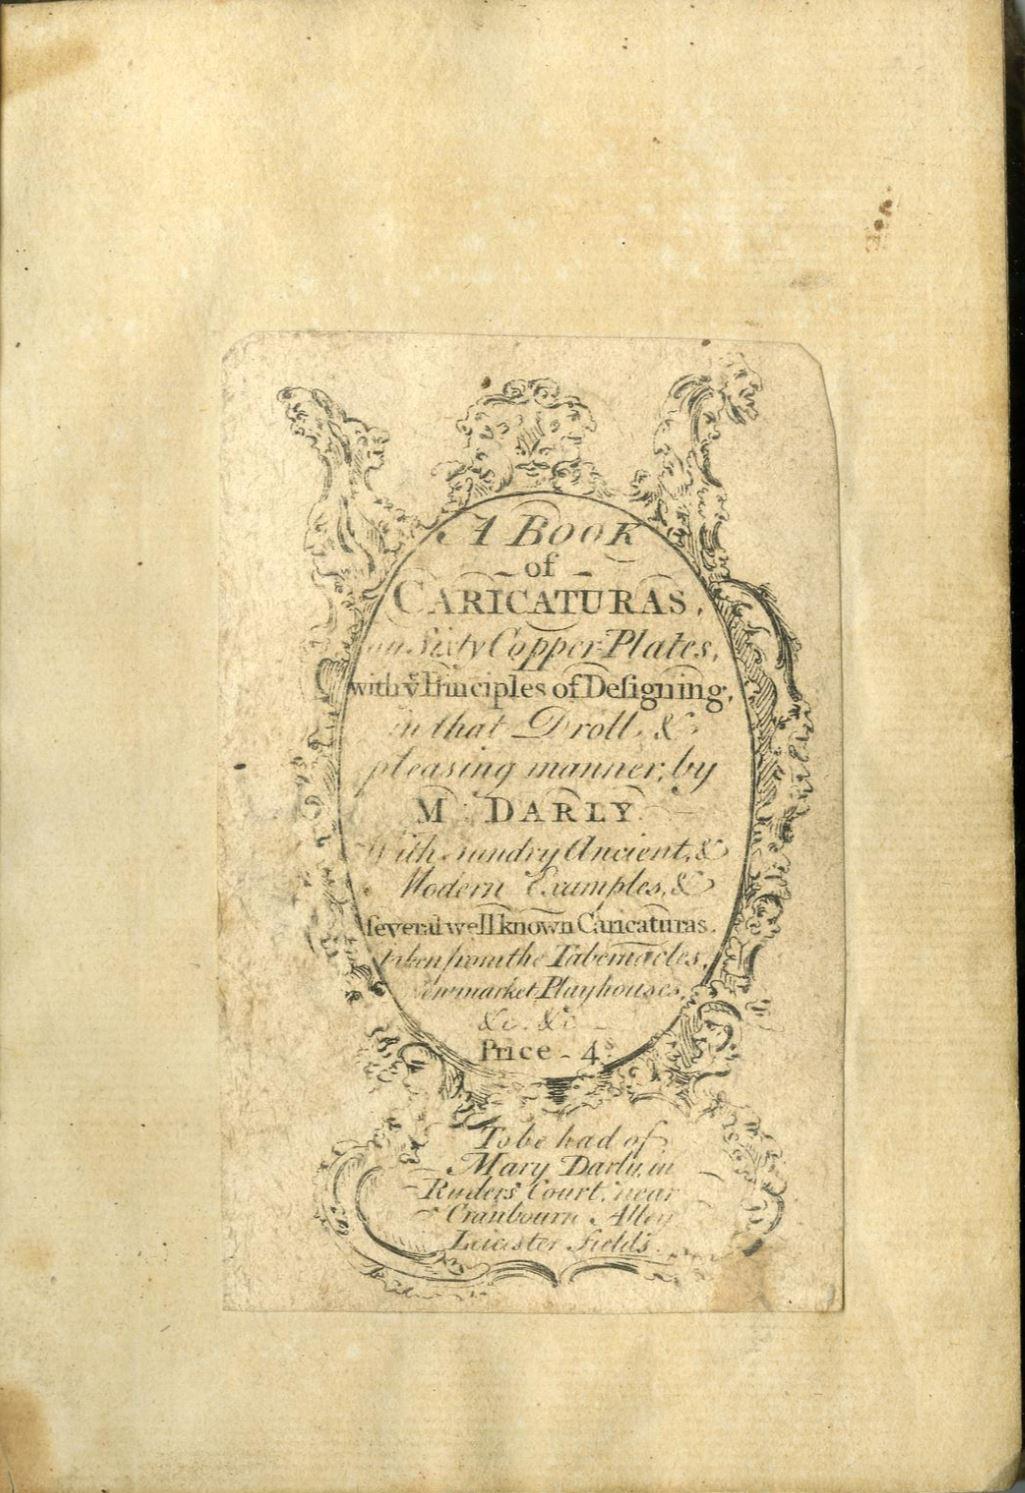 A BOOK
of
CARICATURAS,
on Sixty Copper-Plates,
with yᵉ Principles of Deſigning,
in that Droll, &
pleasing manner, by
M DARLY.
With sundry Ancient, &
Modern Examples, &
ſeveral well known Caricaturas.
taken from the Tabernacles,
Newmarket, Playhouses,
&c. &c
Price - 4ˢ
To be had of
Mary Darly, in
Ryders Court, near
Cranbourn Alley
Leicester Fields.